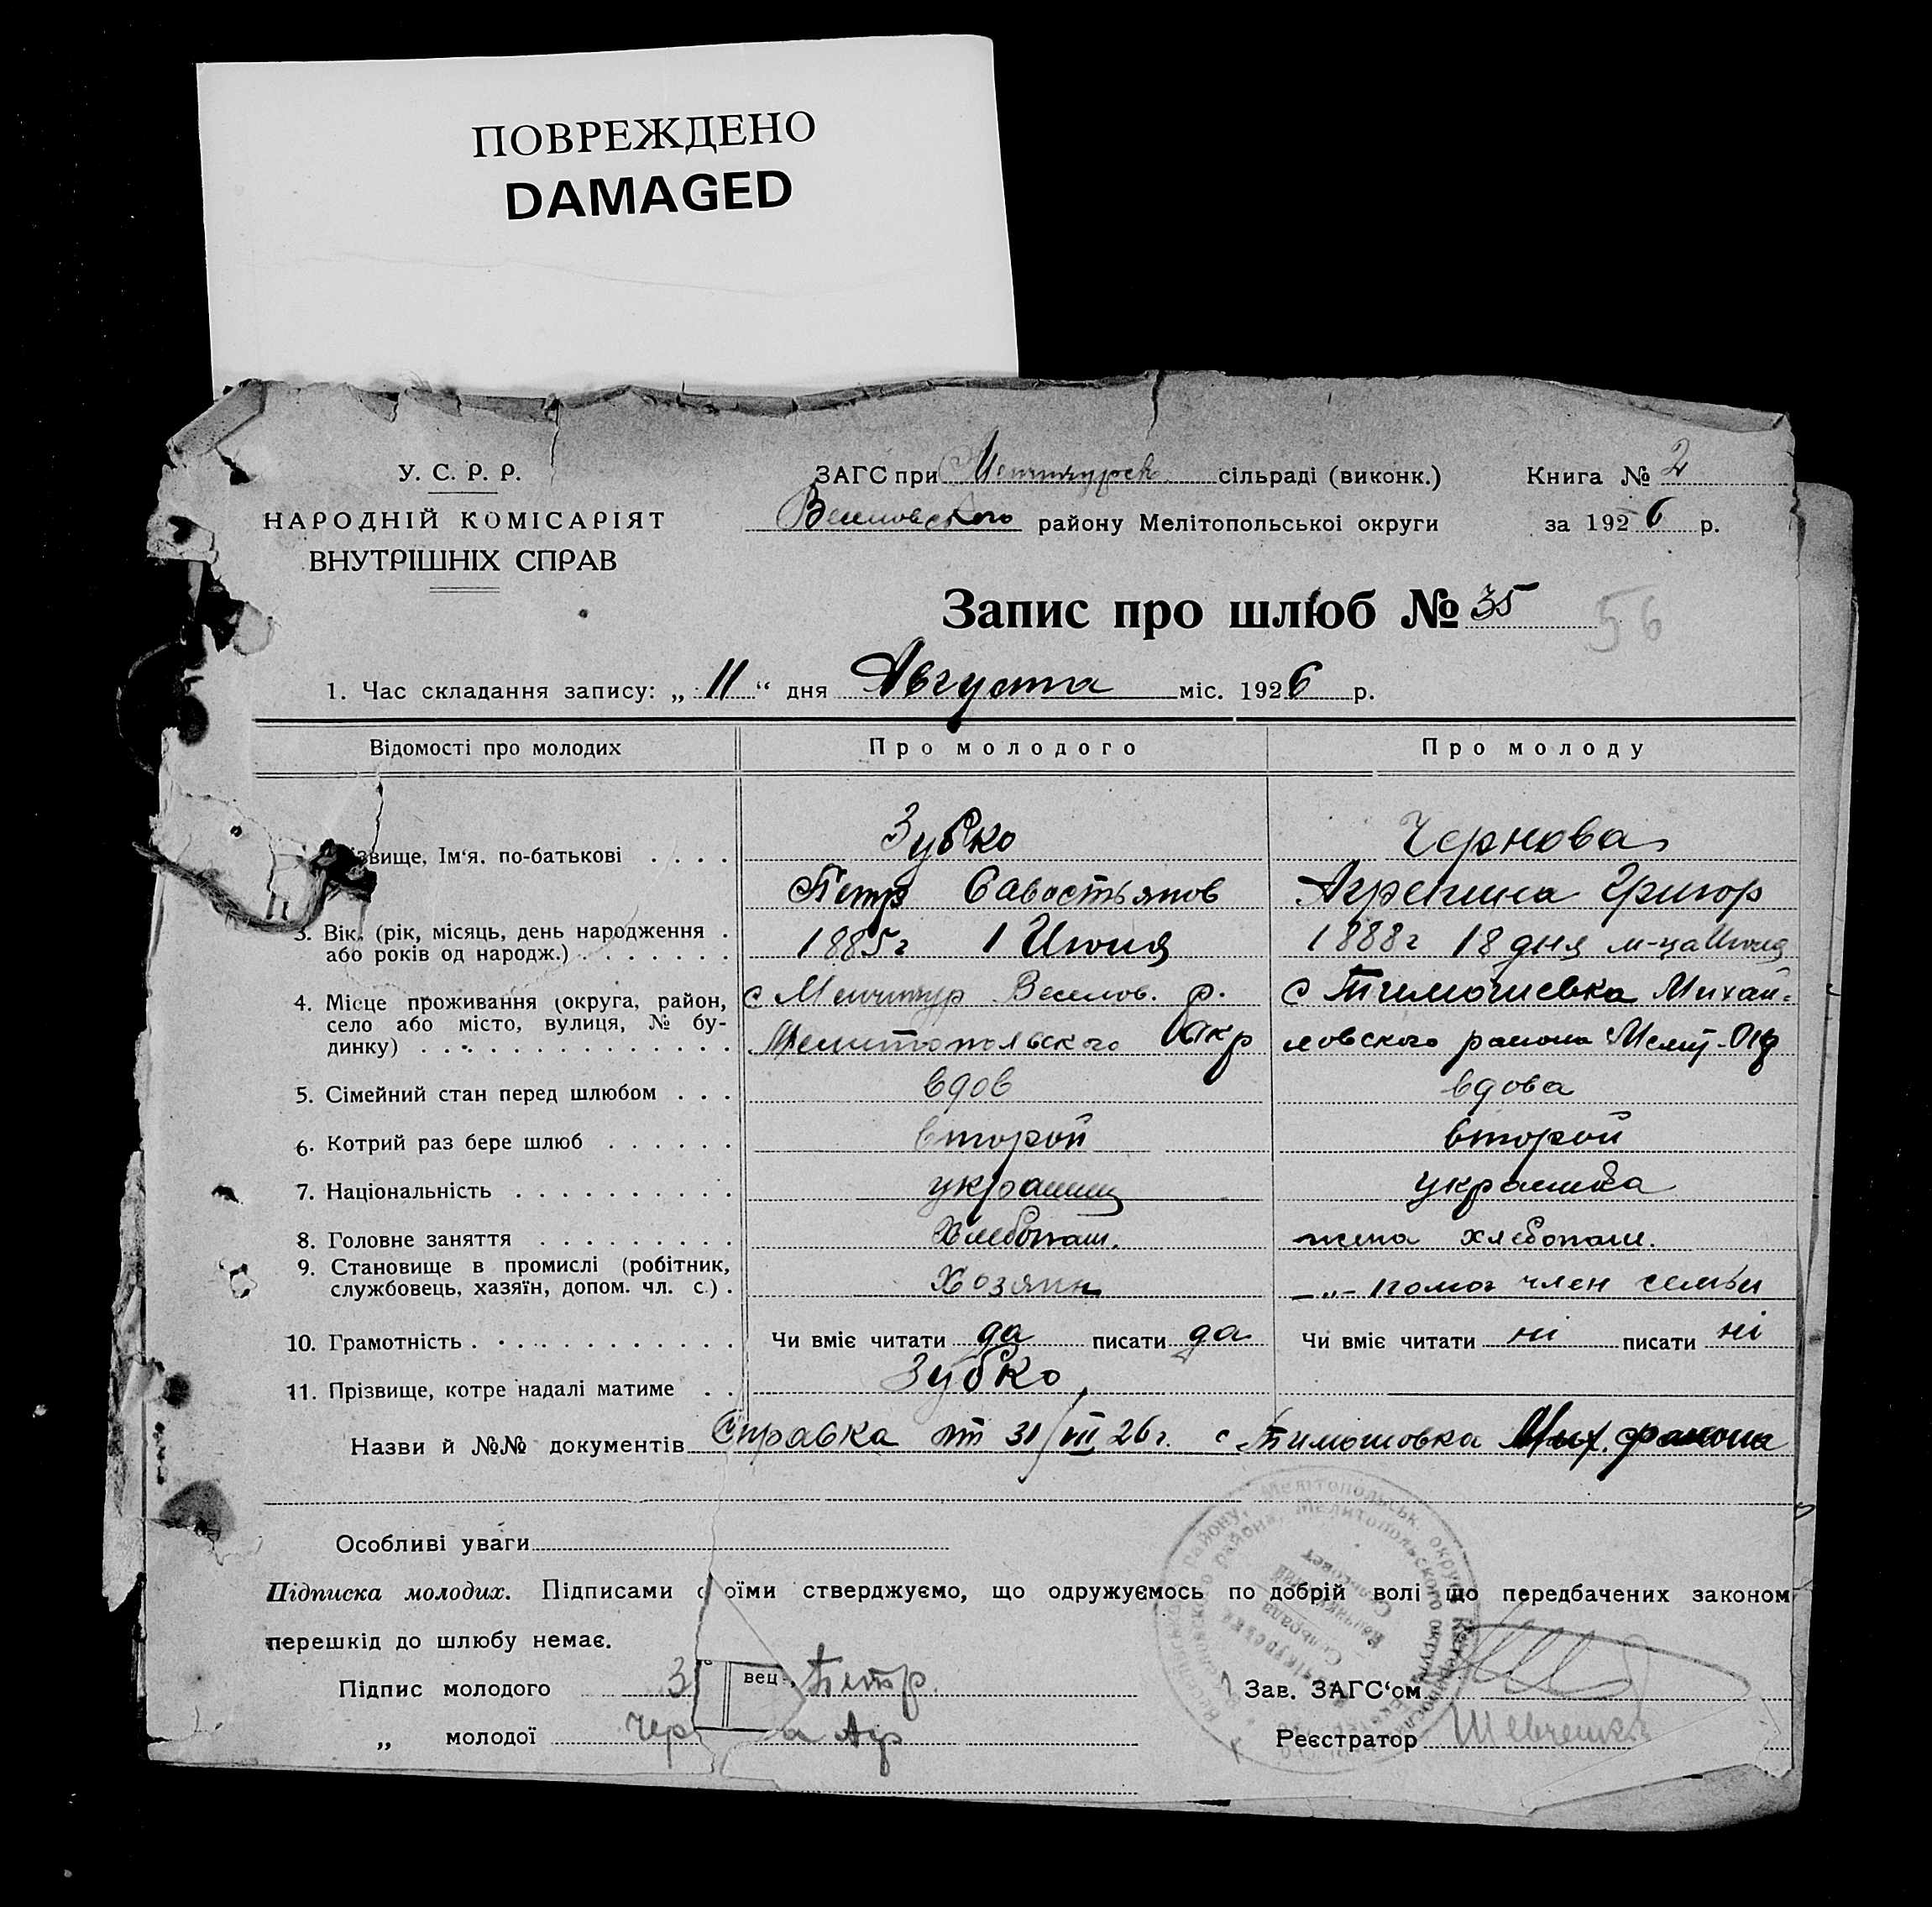 ПОВРЕЖДЕНО
DAMAGED
У. С. Р. Р.
НАРОДНІЙ КОМІСАРІЯТ
ВНУТРІШНІХ СПРАВ
ЗАГС при Менчикурск сільраді (виконк.)
Веселовского району Мелітопольської округи
Книга № 2
за 1926 р.
Запис про шлюб № 35
56
1. Час складання запису: „ 11 “ дня Августа міс. 1926 р.
Відомості про молодих Про молодого Про молоду
ізвище, Ім‘я. по-батькові . . . . Зубко Чернова
Петр Савостьянов Агрепина Григор
3. Вік. (рік, місяць, день народження . 1885г 1 Июня 1888г 18 дня м-ца Июня
або років од народж.) . . . . . . .
4. Місце проживання (округа, район, с Менчикур Веселов. р. с Тимошевка Михай-
село або місто, вулиця, № бу-
динку) . . . . . . . . . . . . . . Мелитопольского Окр ловского района Мелит-
5. Сімейний стан перед шлюбом . . . вдов вдова
6. Котрий раз бере шлюб . . . . . . второй второй
7. Національність . . . . . . . . . . украинец украинка
8. Головне заняття . . . . . . . . . Хлебопаш. жена хлебопаш.
9. Становище в промислі (робітник,
службовець, хазяїн, допом. чл. с.) . Хозяин -„- помог член семьи
10. Грамотність . . . . . . . . . . . . Чи вміє читати да писати да Чи вміє читати ні писати ні
11. Прізвище, котре надалі матиме . . Зубко
Назви й №№ документів Справка от 31/III 26 г. с Тимошовка Мих. района
Особливі уваги
Підписка молодих. Підписами оїми стверджуємо, що одружуємось по добрій волі що передбачених законом
перешкід до шлюбу немає.
Підпис молодого З вец Петр.
„ молодої Чер а Агр
Зав. ЗАГС‘ом
Реєстратор Шевченко